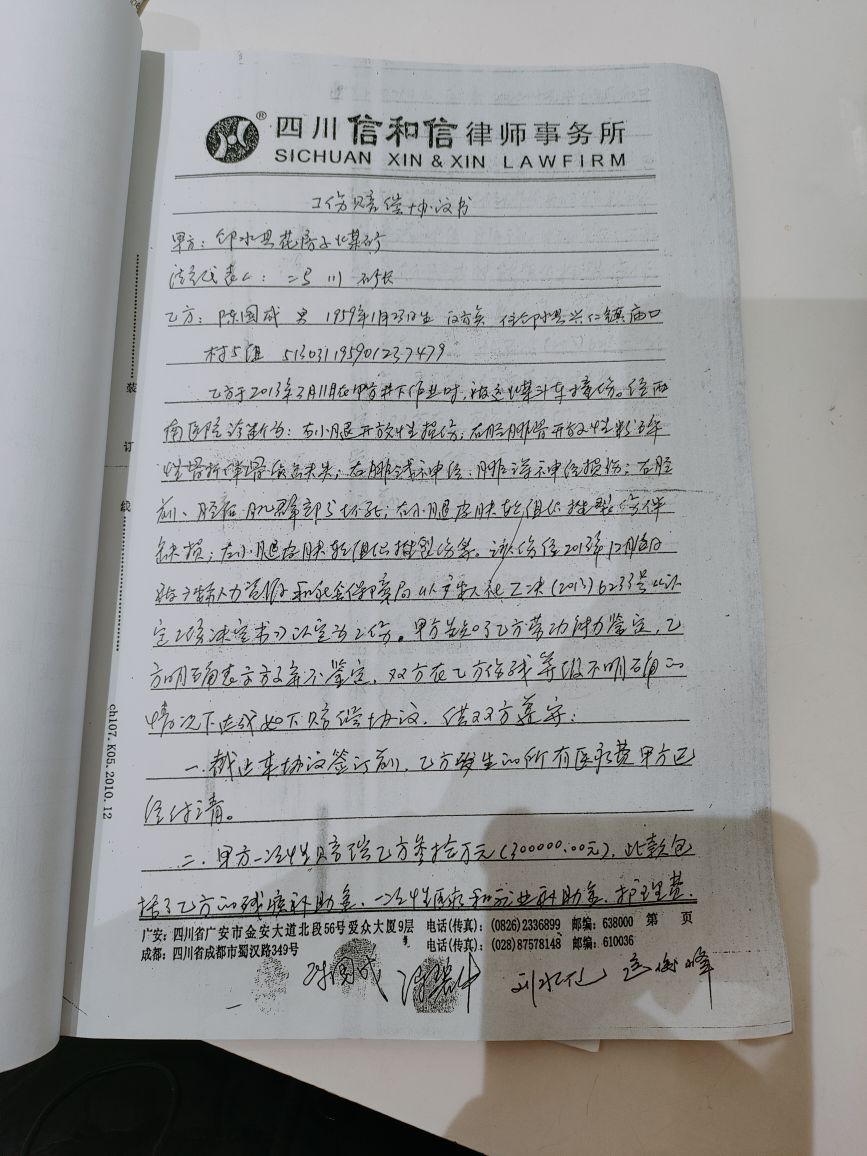 四川信和信律师事务所
SICHUAN XIN & XIN LAWFIRM
工伤赔偿协议书
甲方：邻水县花房子煤矿
法定代表人：
乙方：陈国成 男 1959年1月23日生 汉族 住邻水县兴仁镇庙口
村5组 513031195901237479
乙方于2013年3月11日在甲方井下作业时，被运煤斗车撞伤。经西
南医院诊断为：右小腿开放性损伤；右胫腓骨开放性粉碎
性骨折伴骨质缺失；右腓浅神经、腓深神经损伤；右胫
前、胫后肌群部分坏死；右小腿皮肤软组织挫裂伤伴
缺损；左小腿皮肤软组织挫裂伤等。该伤经2013年12月
人力资源和社会保障局以广人社工决（2013）6233号《认
定工伤决定书》认定为工伤。甲方告知了乙方劳动能力鉴定，乙
方明确表示放弃不鉴定，双方在乙方伤残等级不明确的
情况下达成如下赔偿协议，供双方遵守：
一、截止本协议签订前，乙方发生的所有医疗费甲方已
经付清。
二、甲方一次性赔偿乙方叁拾万元（300000.00元），此款包
括了乙方的残疾补助金、一次性医疗和就业补助金、护理费、
广安：四川省广安市金安大道北段56号爱众大厦9层 电话(传真)：(0826)2336899 邮编：638000 第 页
成都：四川省成都市蜀汉路349号 电话(传真)：(028)87578148 邮编：610036
陈国成
装
订
线
ch107.K05.2010.12